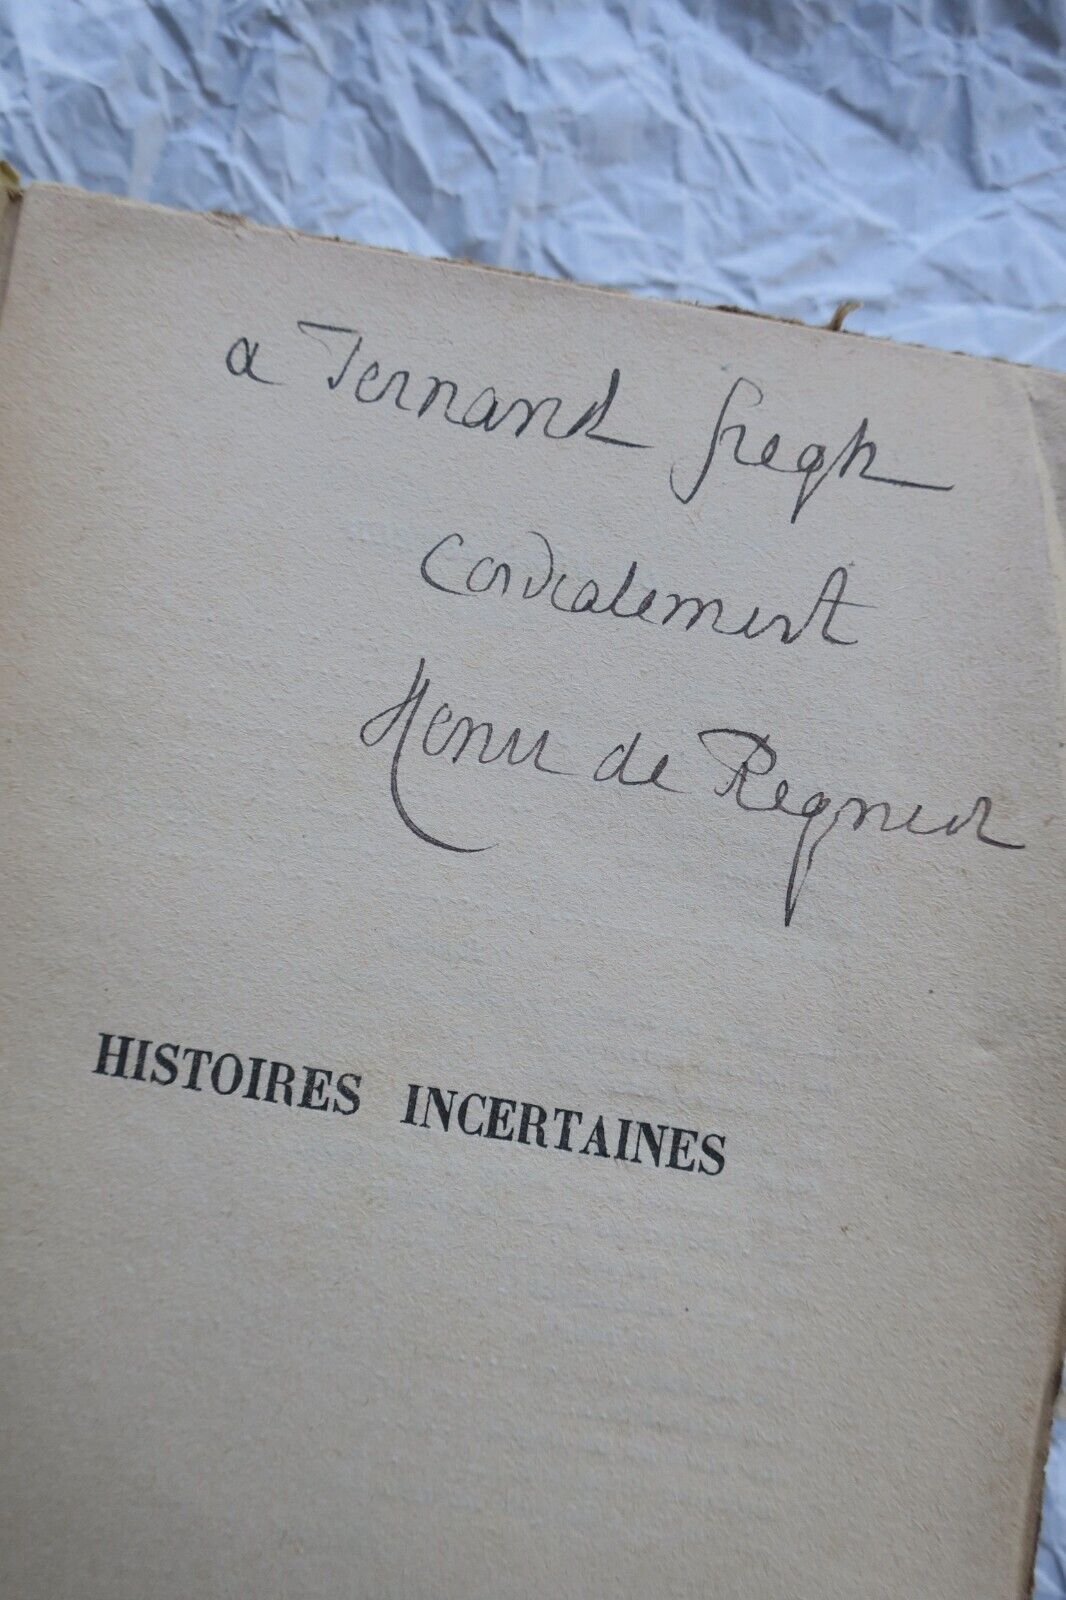 a Fernand Gregh
Cordialement
Henri de Regnier
HISTOIRES INCERTAINES